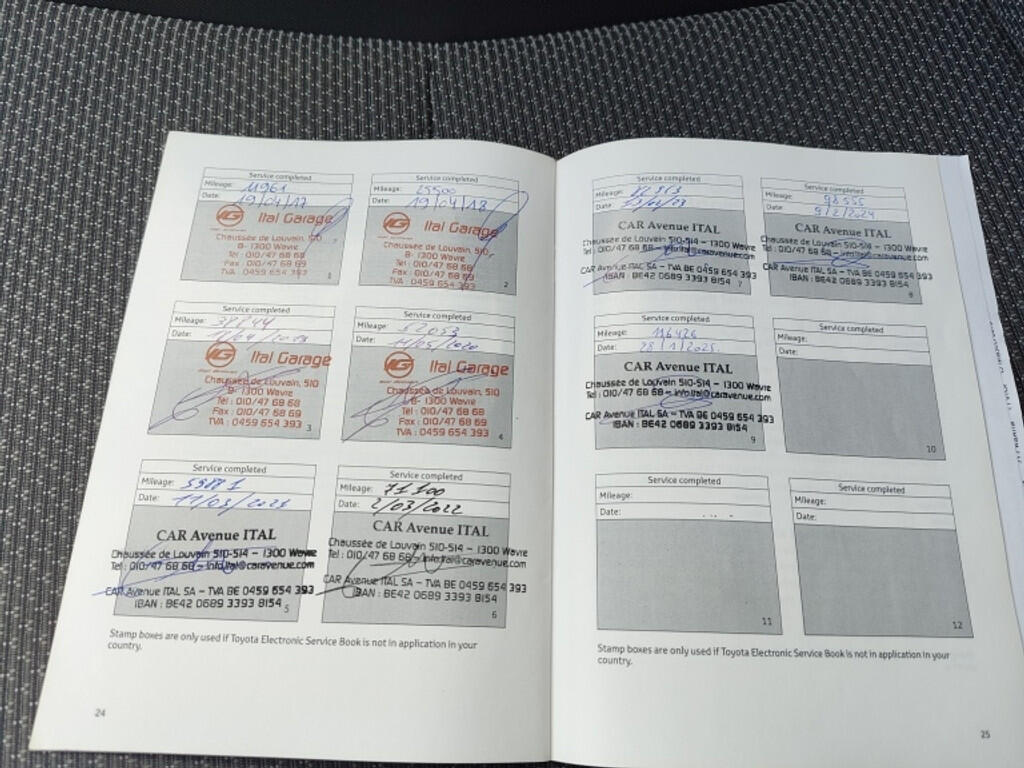 Service completed
Mileage: 11961
Date: 19/04/17
IG Ital Garage
Chaussée de Louvain, 510
B- 1300 Wavre
Tél : 010/47 68 68
Fax : 010/47 68 69
TVA : 0459 654 393
1
Service completed
Mileage: 25500
Date: 19/04/18
IG Ital Garage
Chaussée de Louvain, 510
B- 1300 Wavre
Tél : 010/47 68 68
Fax : 010/47 68 69
TVA : 0459 654 393
2
Service completed
Mileage:
Date:
IG Ital Garage
Chaussée de Louvain, 510
B- 1300 Wavre
Tél : 010/47 68 68
Fax : 010/47 68 69
TVA : 0459 654 393
3
Service completed
Mileage: 52053
Date: 11/05/2020
IG Ital Garage
Chaussée de Louvain, 510
B- 1300 Wavre
Tél : 010/47 68 68
Fax : 010/47 68 69
TVA : 0459 654 393
4
Service completed
Mileage:
Date:
CAR Avenue ITAL
Chaussée de Louvain 510-514 – 1300 Wavre
Tel : 010/47 68 68 – info.ital@caravenue.com
CAR Avenue ITAL SA – TVA BE 0459 654 393
IBAN : BE42 0689 3393 8154
5
Service completed
Mileage: 71 100
Date: 2/03/2022
CAR Avenue ITAL
Chaussée de Louvain 510-514 – 1300 Wavre
Tel : 010/47 68 68 – info.ital@caravenue.com
CAR Avenue ITAL SA – TVA BE 0459 654 393
IBAN : BE42 0689 3393 8154
6
Stamp boxes are only used if Toyota Electronic Service Book is not in application in your
country.
24
Service completed
Mileage:
Date:
CAR Avenue ITAL
Chaussée de Louvain 510-514 – 1300 Wavre
Tel : 010/47 68 68 – info.ital@caravenue.com
CAR Avenue ITAL SA – TVA BE 0459 654 393
IBAN : BE42 0689 3393 8154
7
Service completed
Mileage: 98 555
Date: 9/2/2024
CAR Avenue ITAL
Chaussée de Louvain 510-514 – 1300 Wavre
Tel : 010/47 68 68 – info.ital@caravenue.com
CAR Avenue ITAL SA – TVA BE 0459 654 393
IBAN : BE42 0689 3393 8154
8
Service completed
Mileage: 116426
Date: 28/1/2025
CAR Avenue ITAL
Chaussée de Louvain 510-514 – 1300 Wavre
Tel : 010/47 68 68 – info.ital@caravenue.com
CAR Avenue ITAL SA – TVA BE 0459 654 393
IBAN : BE42 0689 3393 8154
9
Service completed
Mileage:
Date:
10
Service completed
Mileage:
Date:
11
Service completed
Mileage:
Date:
12
Stamp boxes are only used if Toyota Electronic Service Book is not in application in your
country.
25